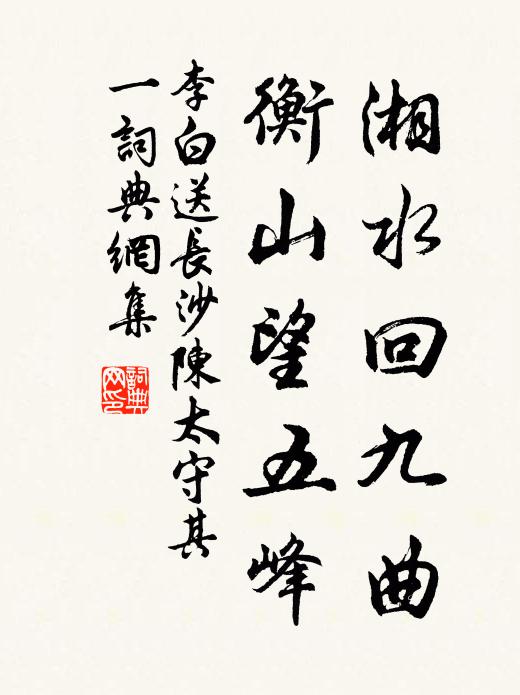 湘水回九曲
衡山望五峰
李白送長沙陳太守其
一詞典網集
詞典
网印